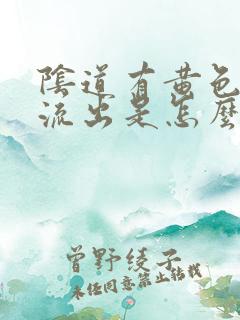 陰道有黃色
流出是怎麼
曾野綾子
未任同意禁止轉載